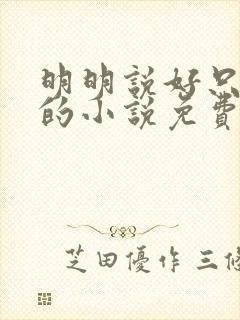 明明說好只
的小說免費
芝田優作 三條